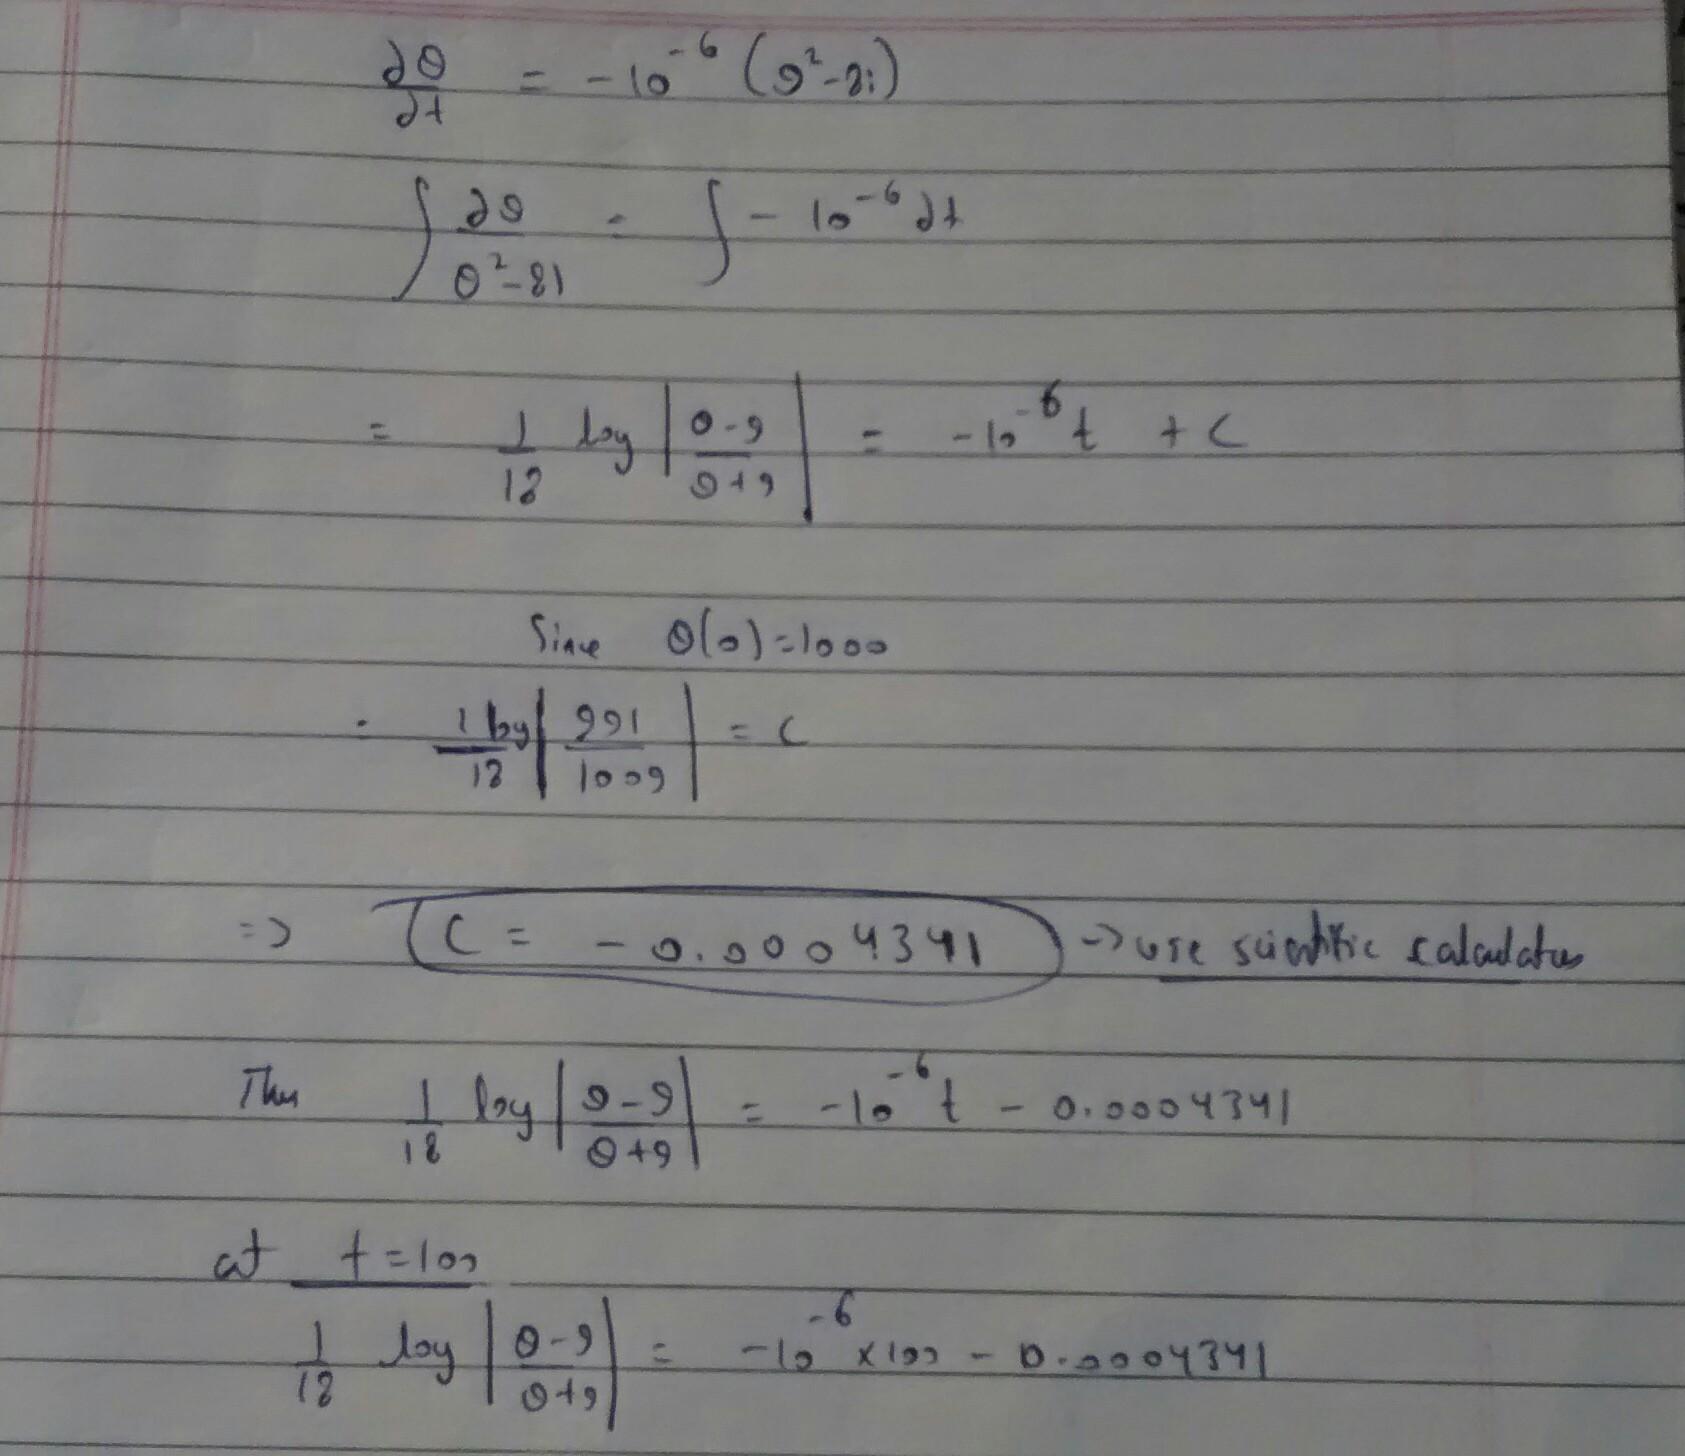 dθ/dt = -10^-6 (θ²-81)
∫ dθ/θ²-81 = ∫ -10^-6 dt
= 1/18 log |θ-9/θ+9| = -10^-6 t + C
Since θ(0)=1000
= 1/18 log |991/1009| = C
=> C = -0.0004341 -> use scientific calculator
Thus 1/18 log |θ-9/θ+9| = -10^-6 t - 0.0004341
at t=100
1/18 log |θ-9/θ+9| = -10^-6 x100 - 0.0004341